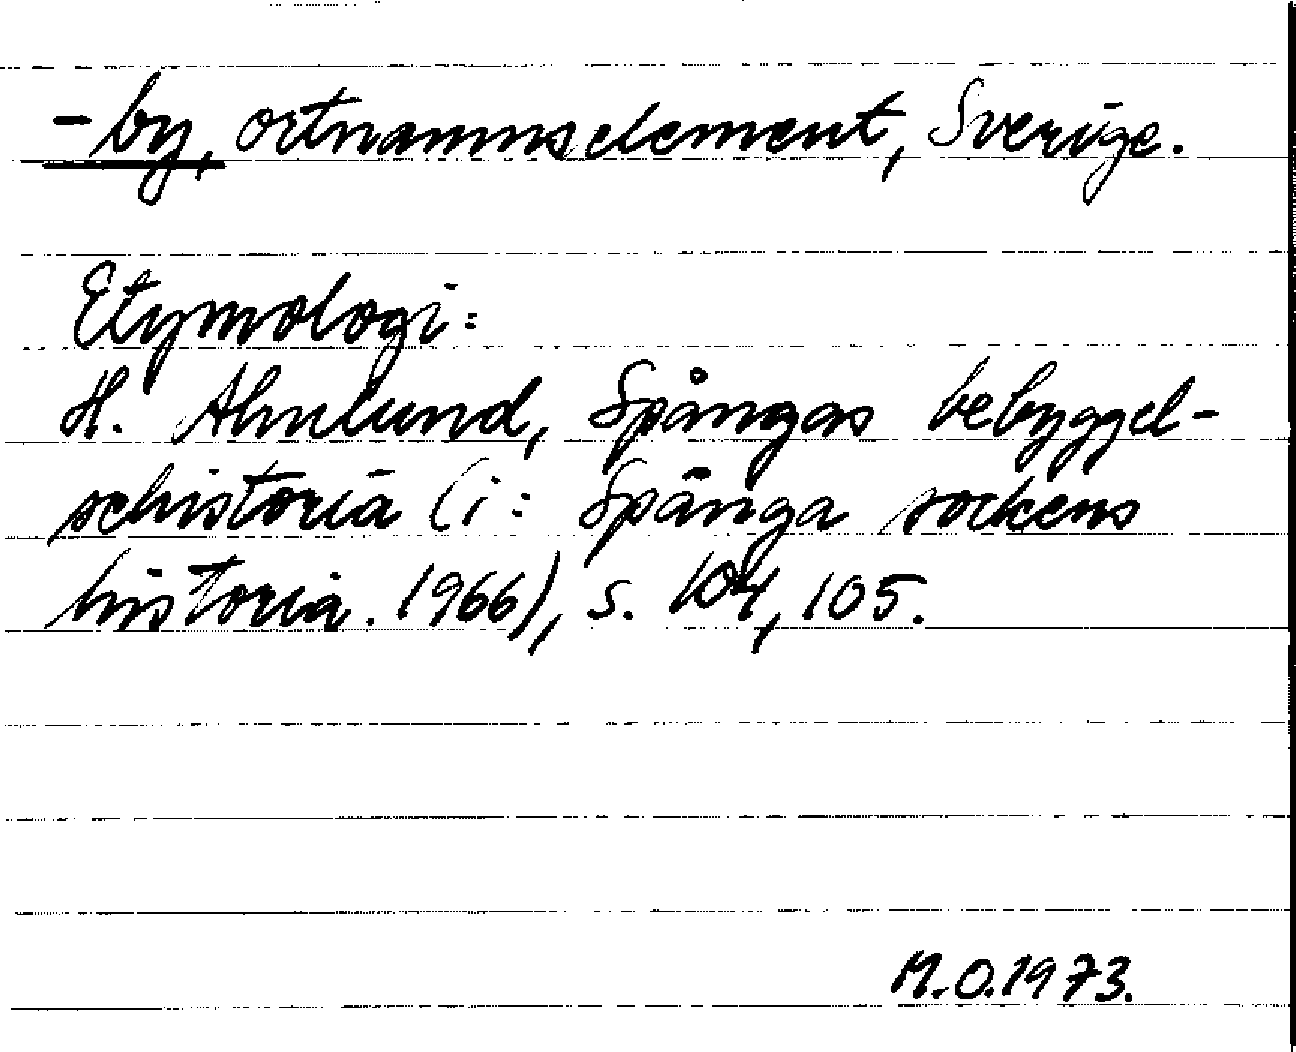 -by, ortnamnselement, Sverige.
Etymologi:
H. Ahnlund, Spångas bebyggel-
sehistoria (i: Spånga sockens
historia. 1966), s. 104, 105.
M.O.1973.